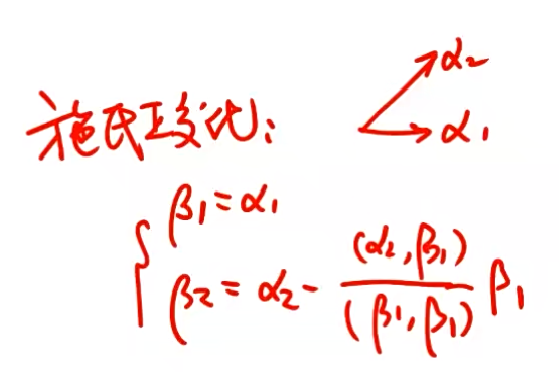 施氏正交化：
α₂
α₁
β₁ = α₁
β₂ = α₂ - (α₂, β₁) / (β₁, β₁) β₁